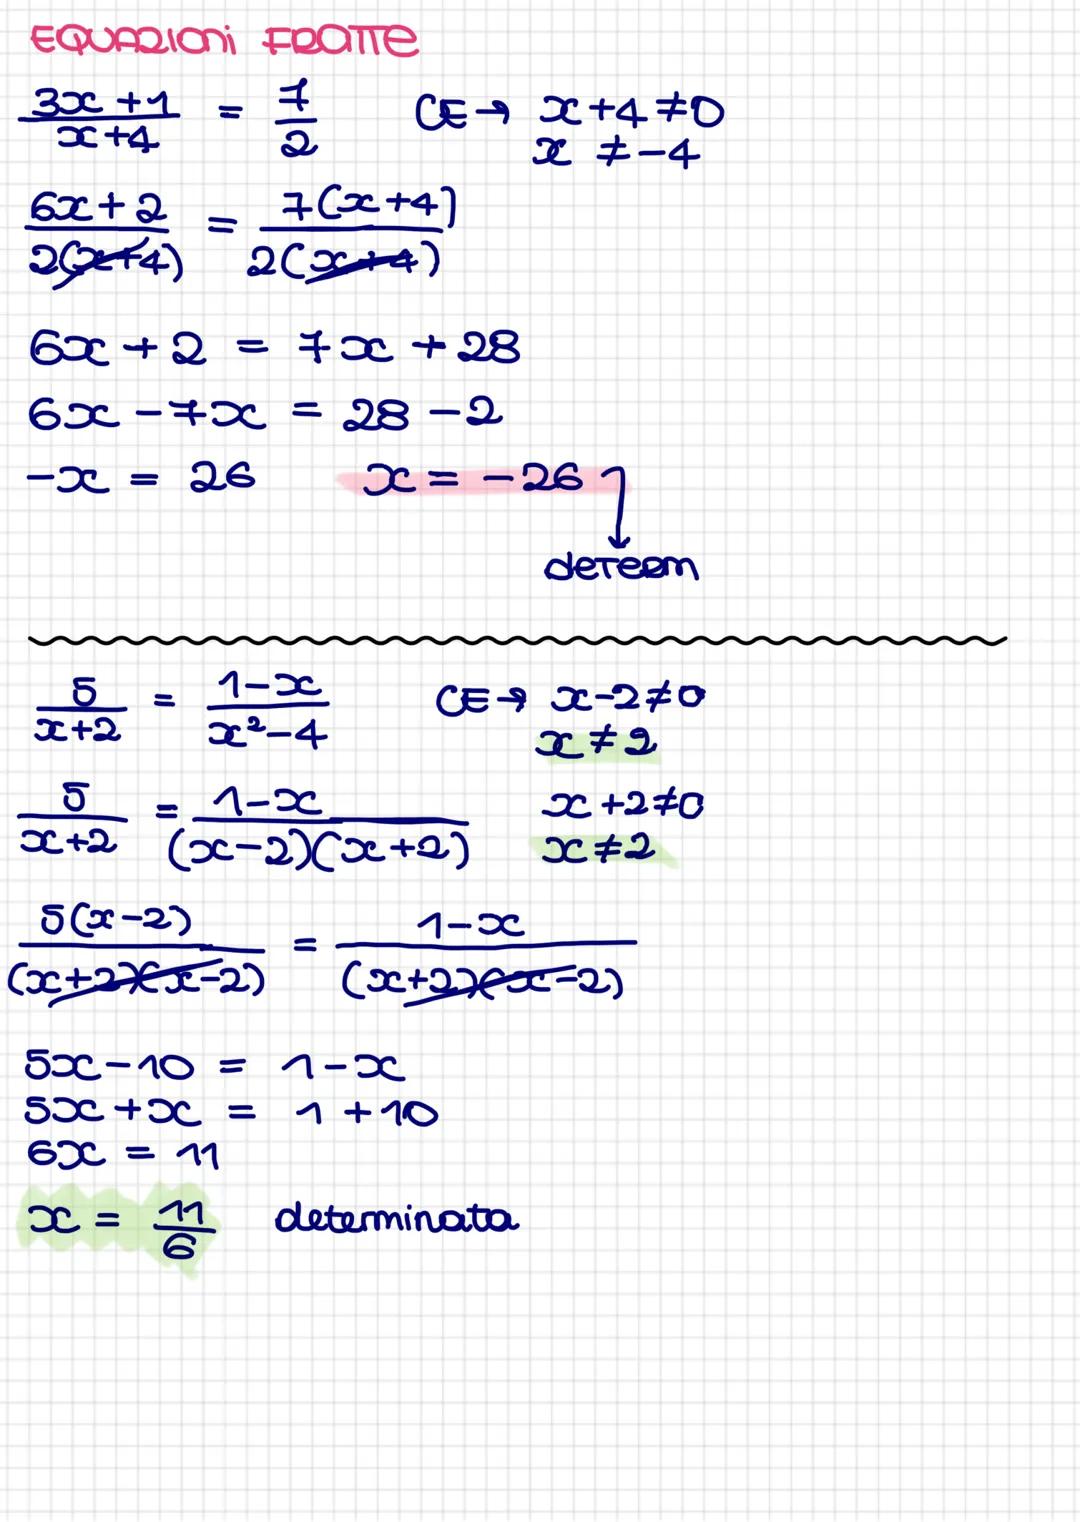 EQUAZIONI FRATTE
3x+1/x+4 = 7/2 CE→ x+4≠0
x ≠-4
6x+2/2(x+4) = 7(x+4)/2(x+4)
6x+2 = 7x+28
6x-7x = 28-2
-x = 26 x = -26
determ
5/x+2 = 1-x/x²-4 CE→ x-2≠0
x≠2
5/x+2 = 1-x/(x-2)(x+2) x+2≠0
x≠2
5(x-2)/(x+2)(x-2) = 1-x/(x+2)(x-2)
5x-10 = 1-x
5x+x = 1+10
6x = 11
x = 11/6 determinata